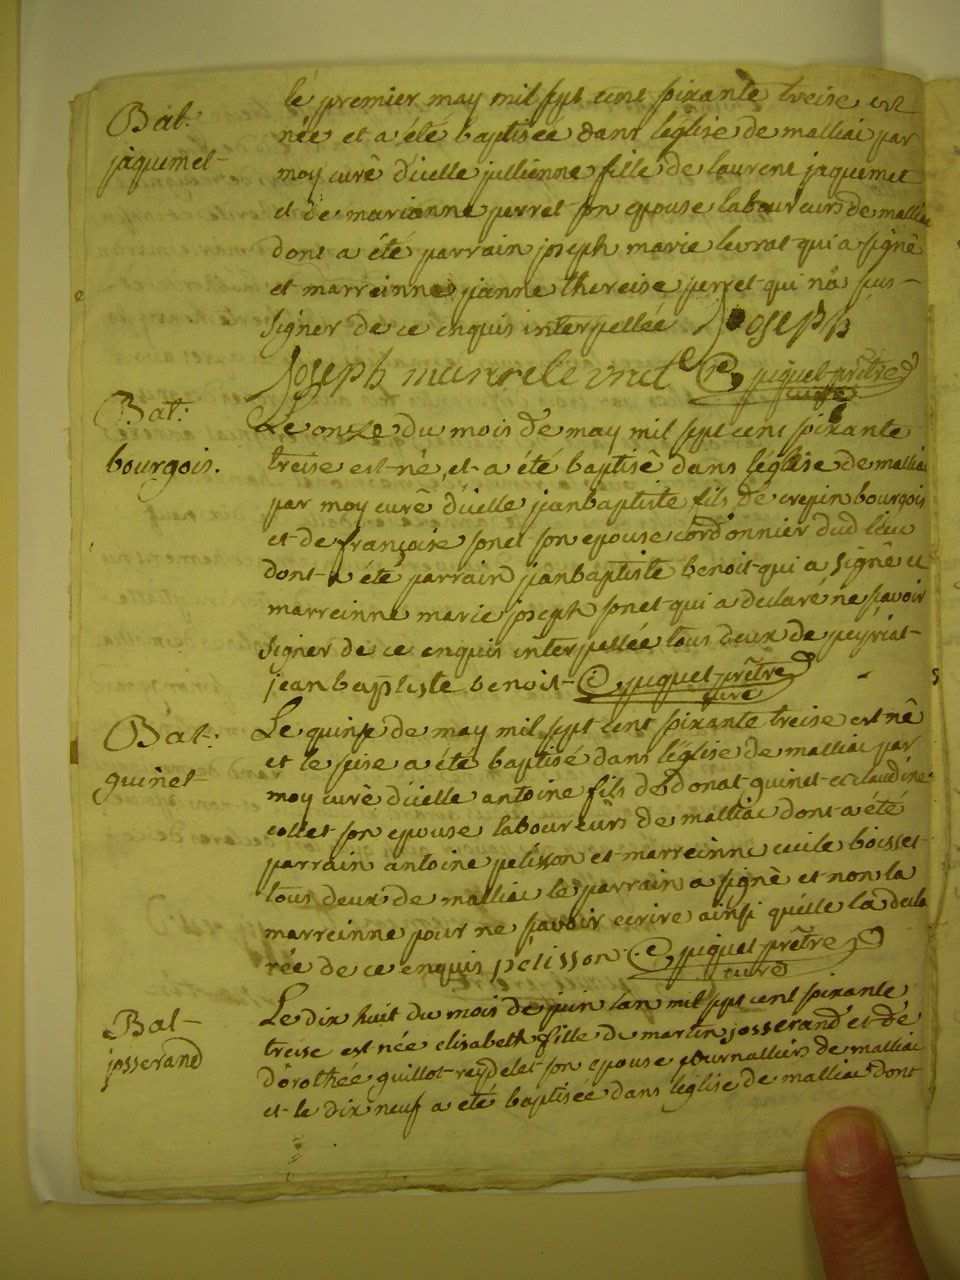 Bat.
jaquemet
le premier may mil sept cent soixante treise est
née et a été baptisée dans léglise de malliac par
moy curé d'icelle jullienne fille de laurent jaquemet
et de marianne perret son epouse laboureurs de malliac
dont a été parrain joseph marie levrat qui a signé
et marreinne jeanne thereise perret qui na sus
signer de ce enquis interpellée Joseph
Joseph marie levrat juquel prêtre
curé
Bat.
bourgois.
Le onze du mois de may mil sept cent soixante
treise est né et a été baptisé dans léglise de malliac
par moy curé d'icelle jeanbaptiste fils de crepin bourgois
et de françoise sonet son epouse cordonnier dud lieu
dont a été parrain jeanbaptiste benoit qui a signé et
marreinne marie joseph sonet qui a declaré ne scavoir
signer de ce enquis interpellée tous deux de peyriat
jean baptiste benoit juquel prêtre
curé
Bat.
guinet
Le quinse de may mil sept cent soixante treise est né
et le seise a été baptisé dans léglise de malliac par
moy curé d'icelle antoine fils de donat guinet et claudine
collet son epouse laboureurs de malliac dont a été
parrain antoine pelisson et marreinne cecile boisset
tous deux de malliac le parrain a signé et non la
marreinne pour ne scavoir ecrire ainsi quelle la decla
rée de ce enquis pelisson juquel prêtre
curé
Bat
josserand
Le dix huit du mois de juin lan mil sept cent soixante
treise est née elisabeth fille de martin josserand et de
dorothée guillot reydelet son epouse journalliers de malliac
et le dix neuf a été baptisée dans léglise de malliac dont